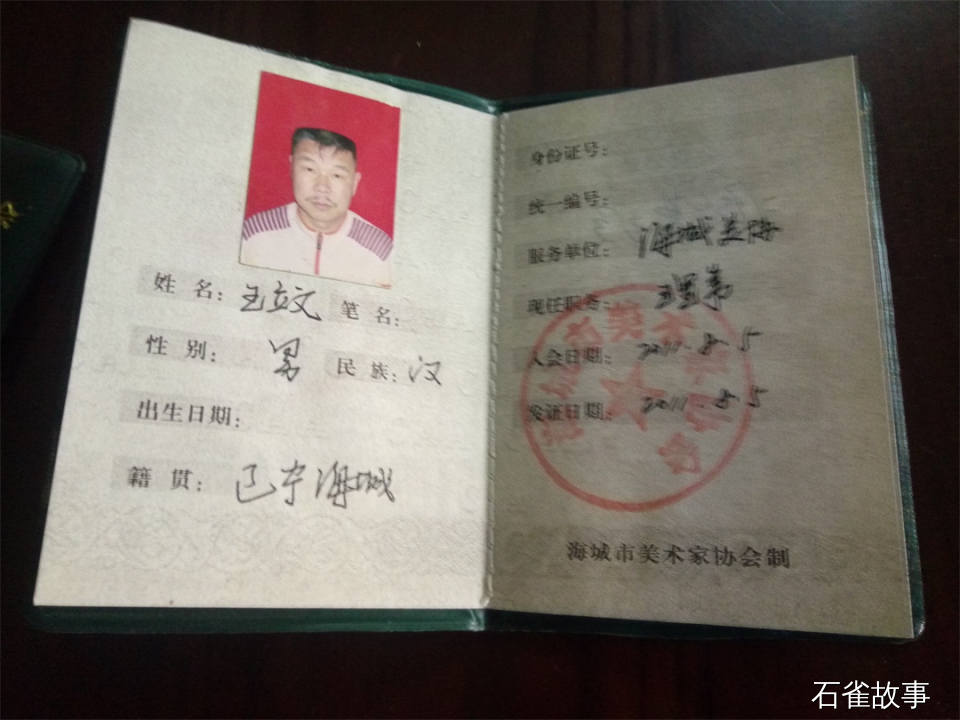 姓 名: 王立文 笔 名:
性 别: 男 民 族: 汉
出生日期:
籍 贯: 辽宁海城
身份证号:
统一编号:
服务单位: 海城
现任职务: 理事
入会日期: 2011.8.5
发证日期: 2011.8.5
海城市美术家协会制
石雀故事